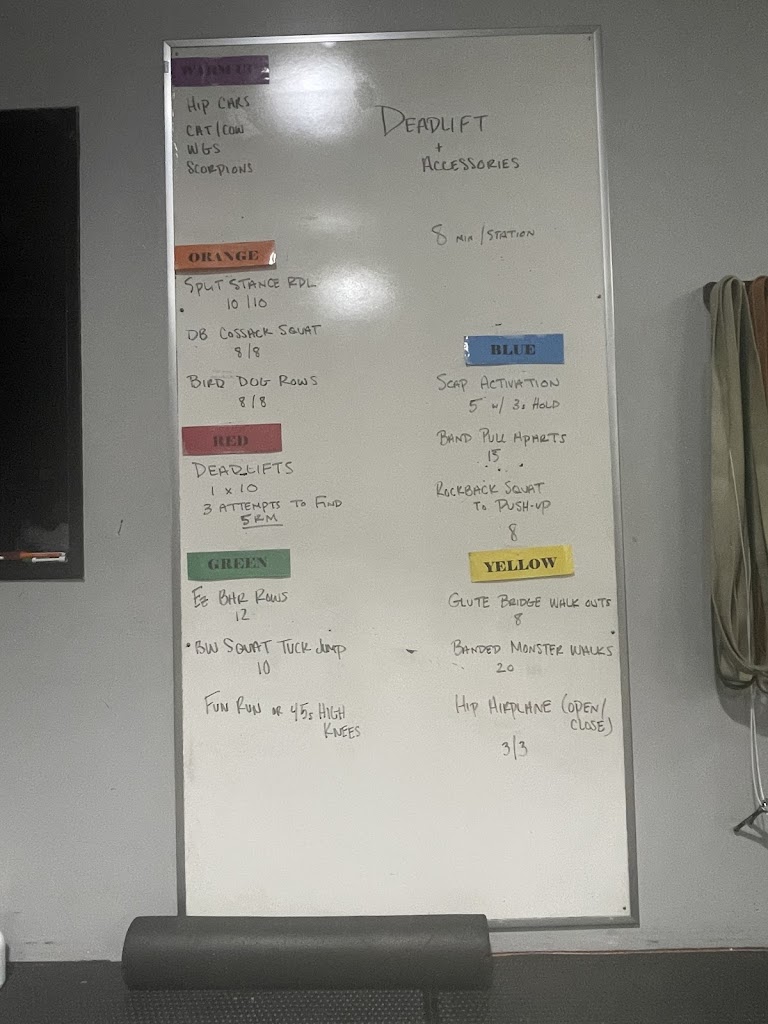 WARM UP
HIP CARS
CAT/COW
WGS
SCORPIONS
DEADLIFT
+
ACCESSORIES
8 MIN/STATION
ORANGE
SPLIT STANCE RDL
10/10
DB COSSACK SQUAT
8/8
BIRD DOG ROWS
8/8
RED
DEADLIFTS
1 x 10
3 ATTEMPTS TO FIND
5RM
GREEN
EZ BAR ROWS
12
BW SQUAT TUCK JUMP
10
FUN RUN OR 45s HIGH
KNEES
BLUE
SCAP ACTIVATION
5 w/ 3s HOLD
BAND PULL APARTS
15
ROCKBACK SQUAT
TO PUSH-UP
8
YELLOW
GLUTE BRIDGE WALK OUTS
8
BANDED MONSTER WALKS
20
HIP AIRPLANE (OPEN/
CLOSE)
3/3